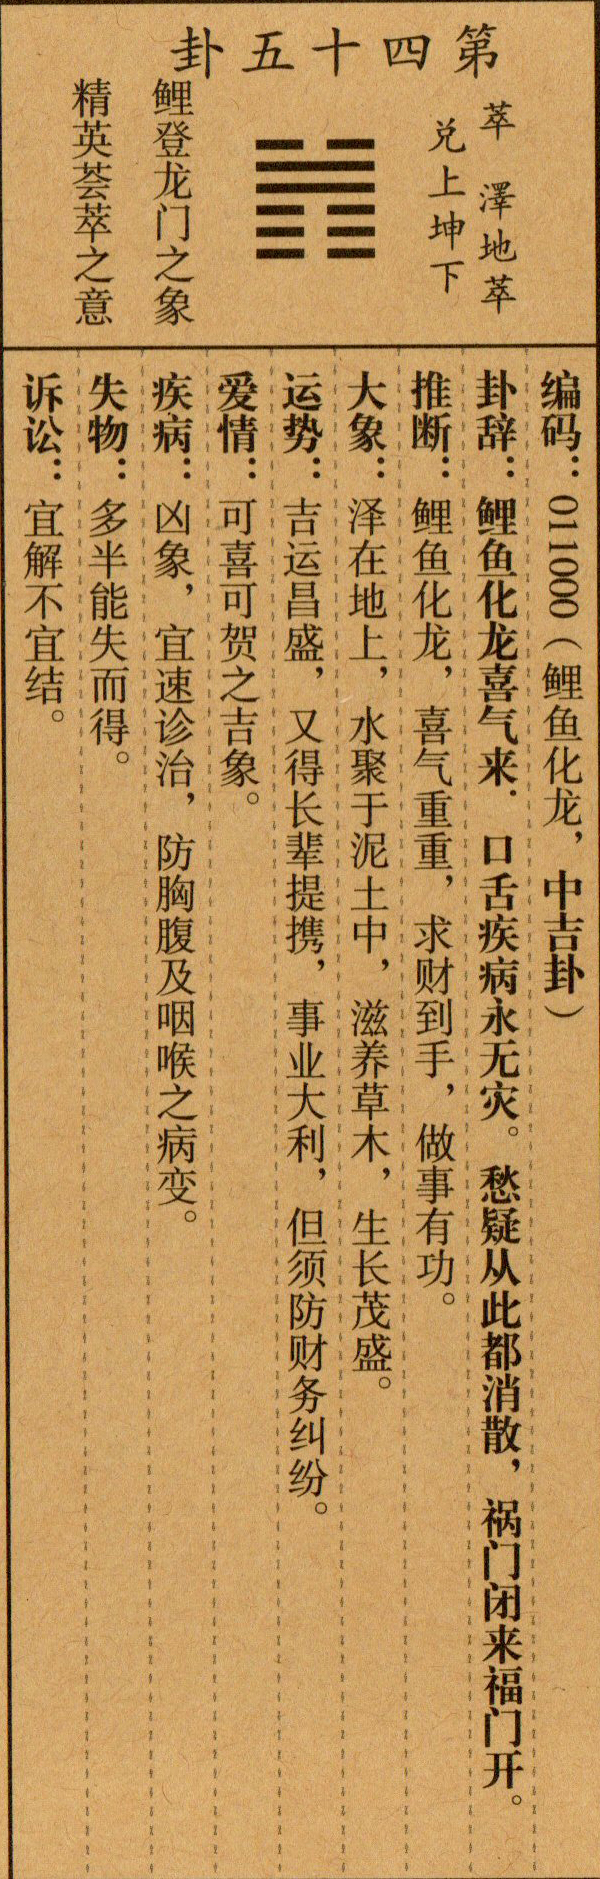 第四十五卦
萃 澤地萃
兑上坤下
鲤登龙门之象
精英荟萃之意
编码：011000（鲤鱼化龙，中吉卦）
卦辞：鲤鱼化龙喜气来．口舌疾病永无灾。愁疑从此都消散，祸门闭来福门开。
推断：鲤鱼化龙，喜气重重，求财到手，做事有功。
大象：泽在地上，水聚于泥土中，滋养草木，生长茂盛。
运势：吉运昌盛，又得长辈提携，事业大利，但须防财务纠纷。
爱情：可喜可贺之吉象。
疾病：凶象，宜速诊治，防胸腹及咽喉之病变。
失物：多半能失而得。
诉讼：宜解不宜结。